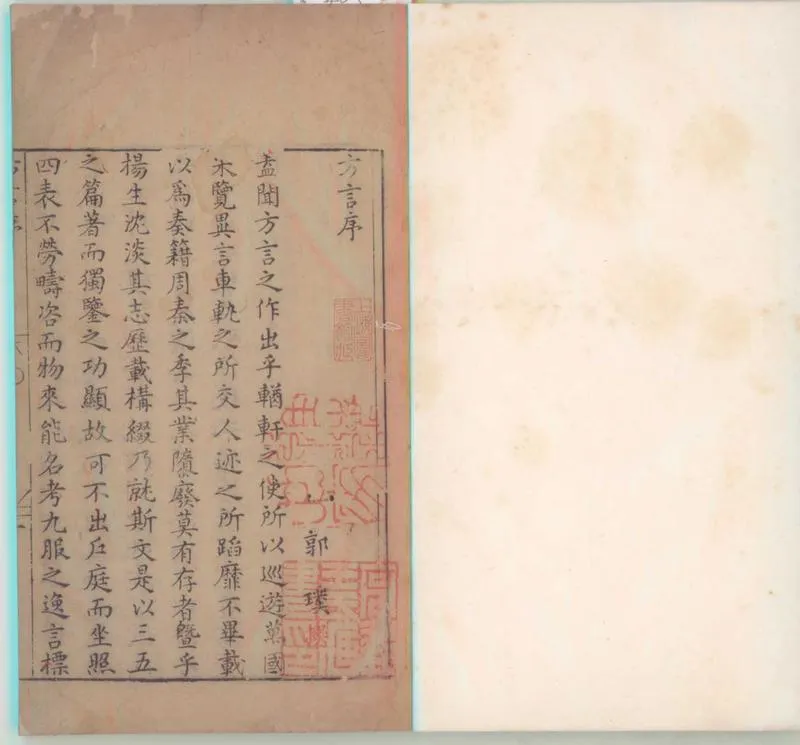 方言序
郭璞撰
蓋聞方言之作出乎輶軒之使所以巡遊萬國
釆覽異言車軌之所交人迹之所蹈靡不畢載
以爲奏籍周秦之季其業隳廢莫有存者暨乎
楊生沈淡其志歷載構綴乃就斯文是以三五
之篇著而獨鑒之功顯故可不出戶庭而坐照
四表不勞疇咨而物來能名考九服之逸言標